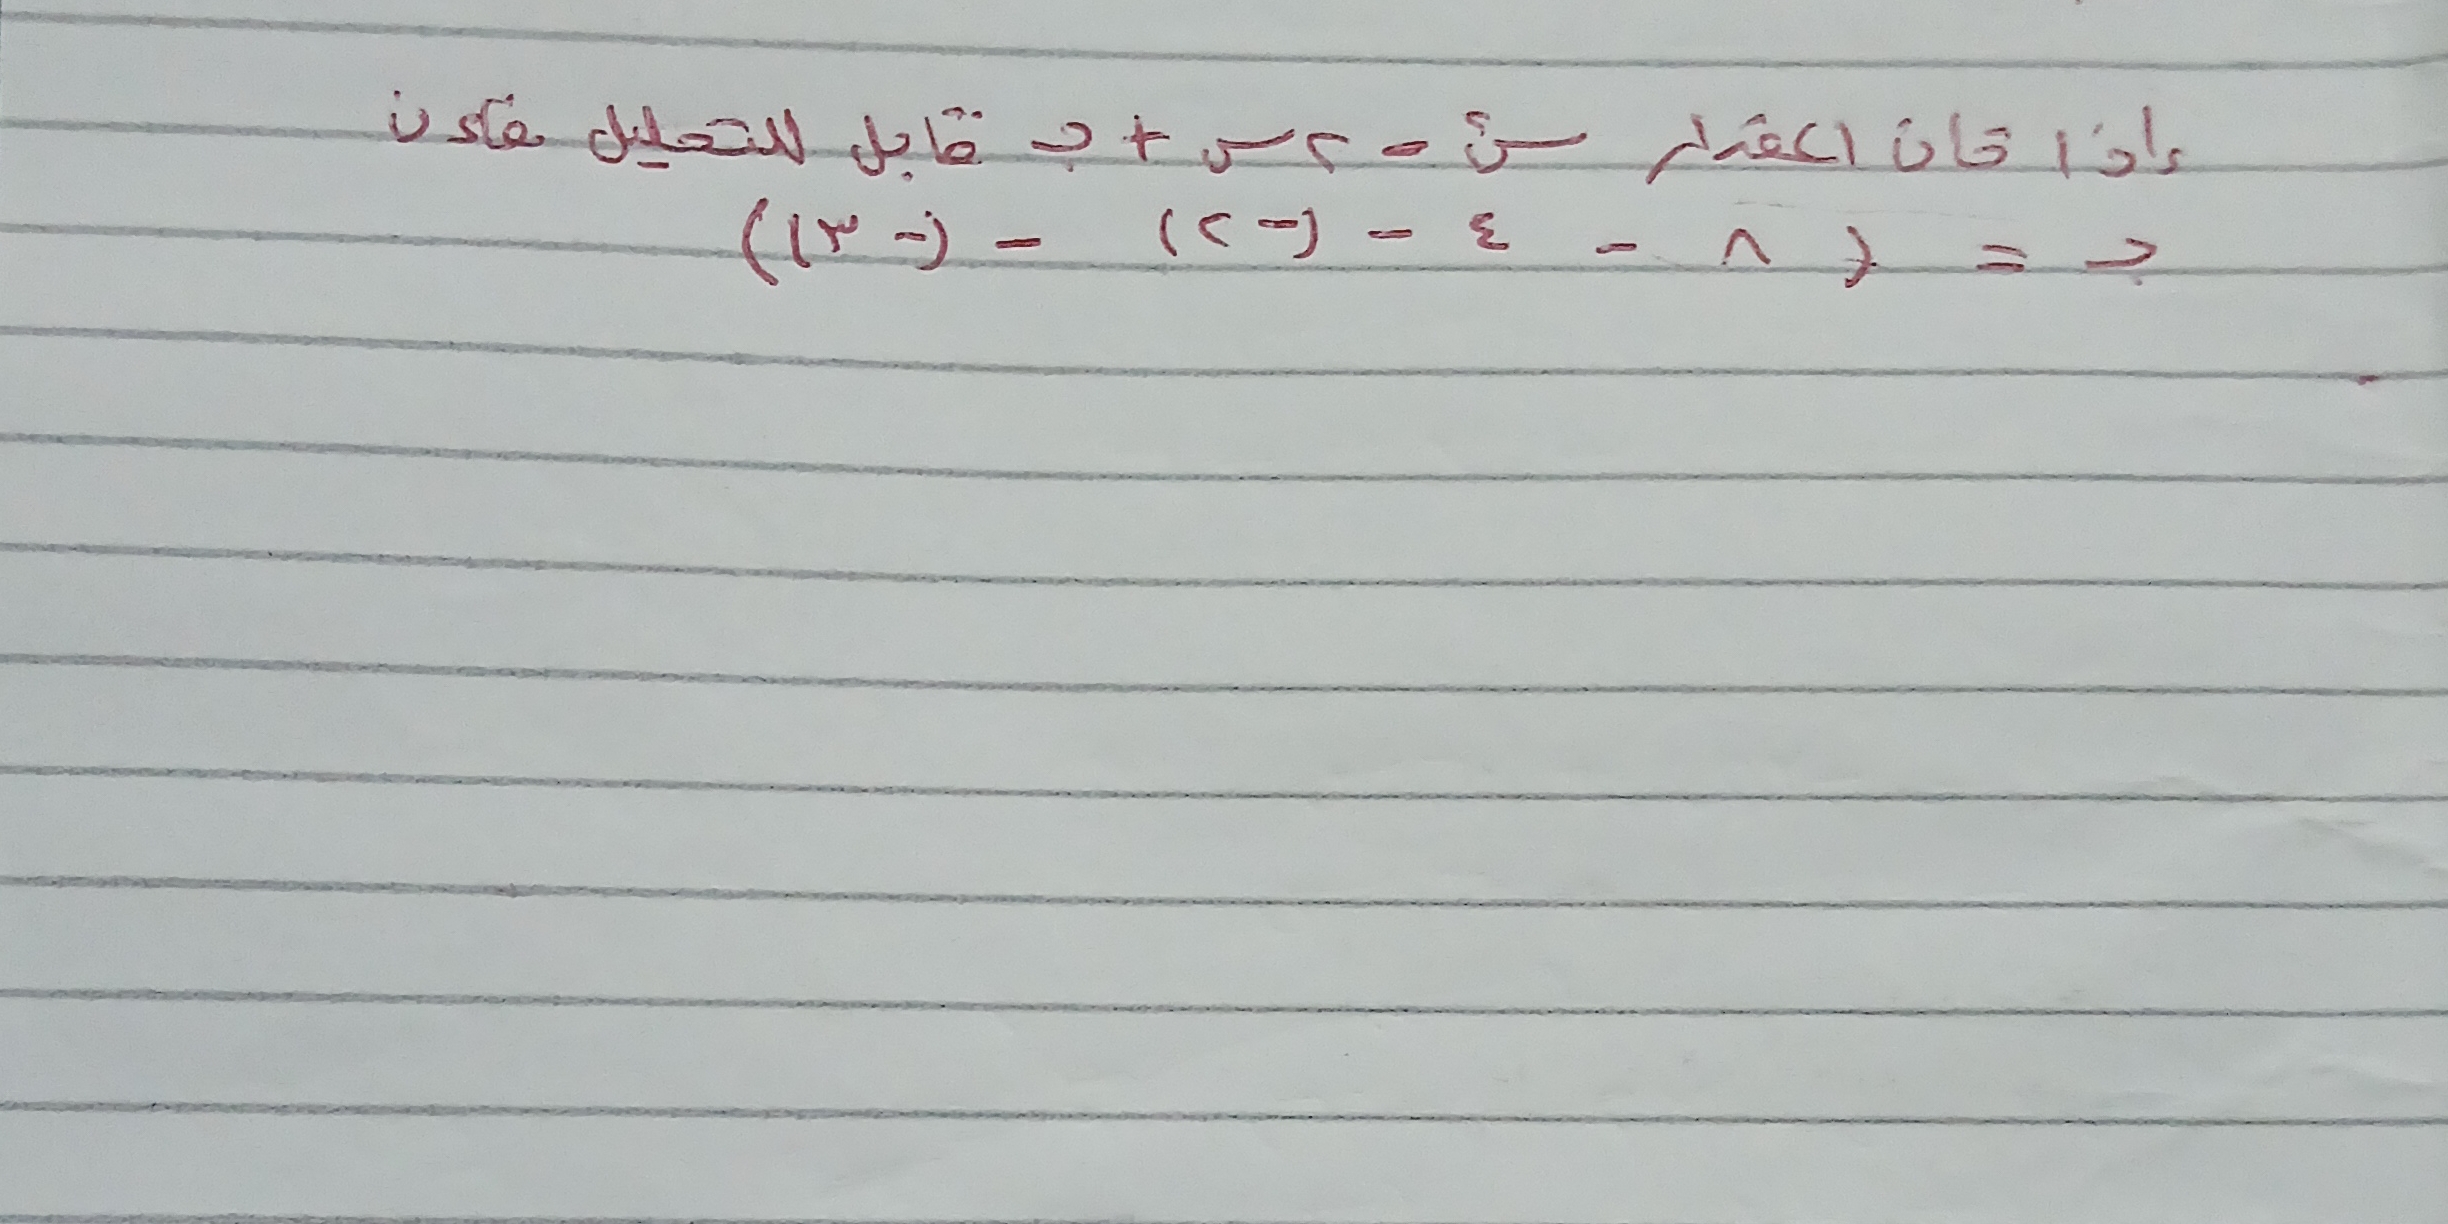 إذا كان المقدار س² - ٢س + جـ قابل للتحليل فإن
جـ = { ٨ - ٤ - (-٢) - (-٣))